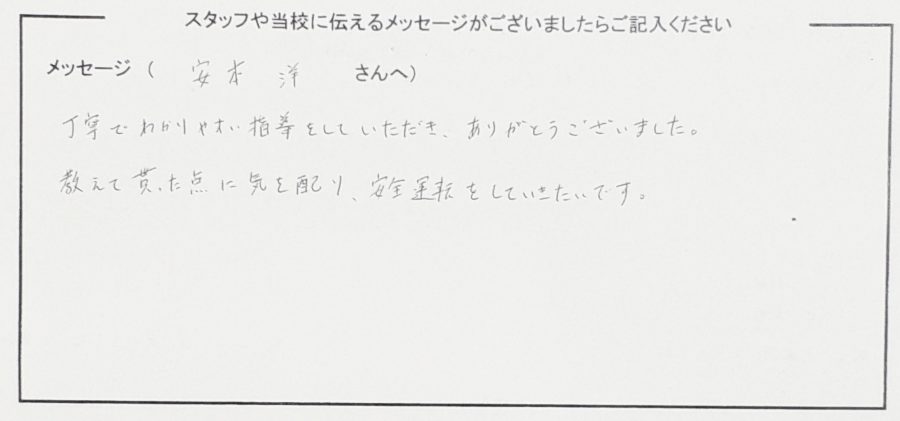 スタッフや当校に伝えるメッセージがございましたらご記入ください
メッセージ( 安本 洋 さんへ)
丁寧でわかりやすい指導をしていただき、ありがとうございました。
教えて貰った点に気を配り、安全運転をしていきたいです。